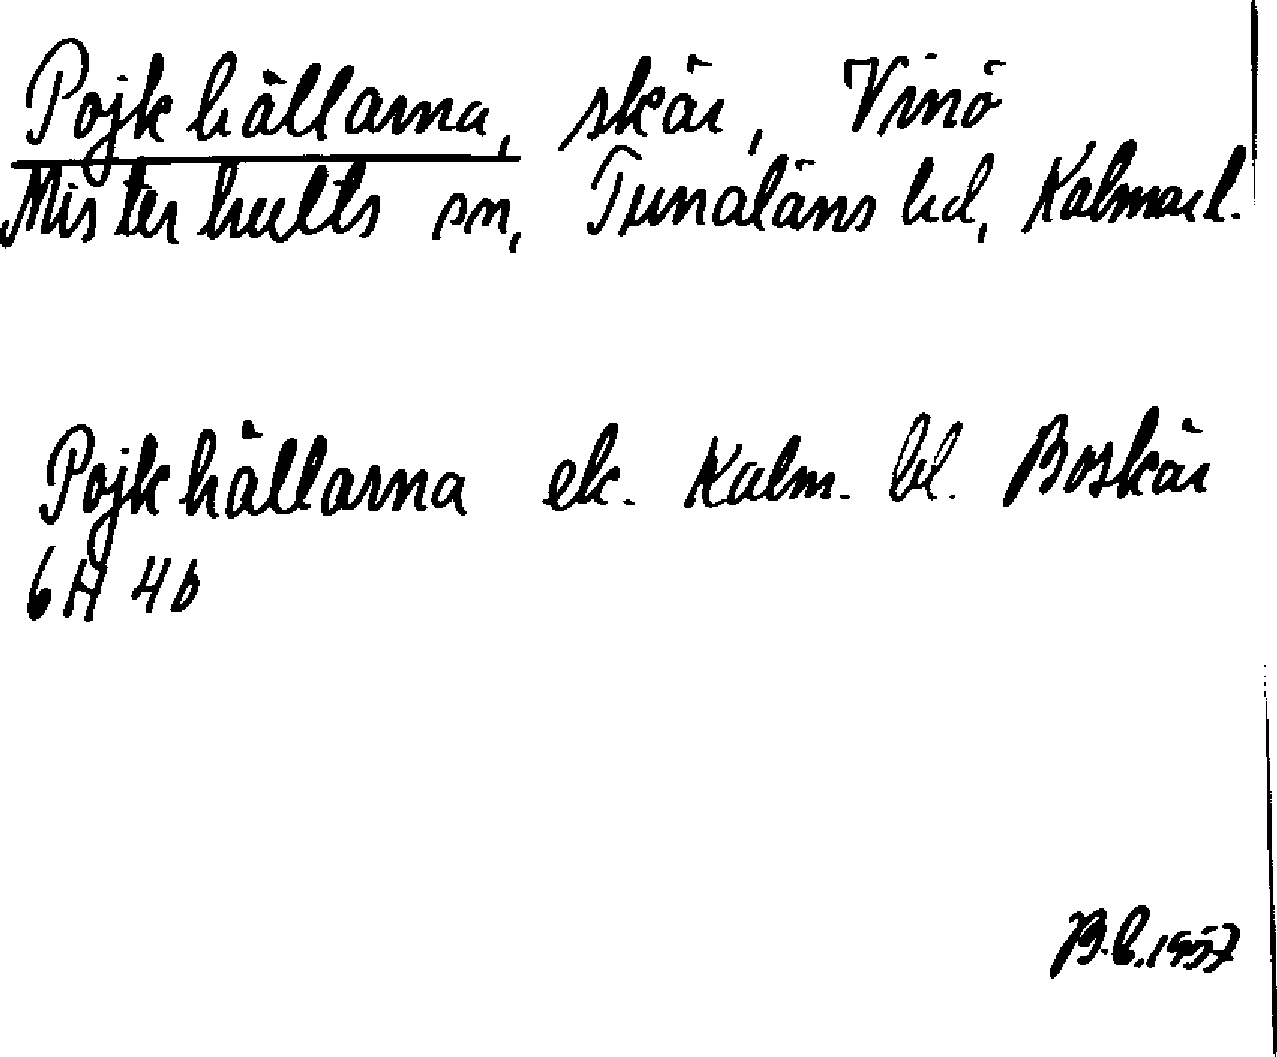 Pojkhällarna, skär, Vinö
Misterhults sn, Tunaläns hd, Kalmar l.
Pojkhällarna ek. Kalm. bl. Boskär
6H 4b
B.L. 1957